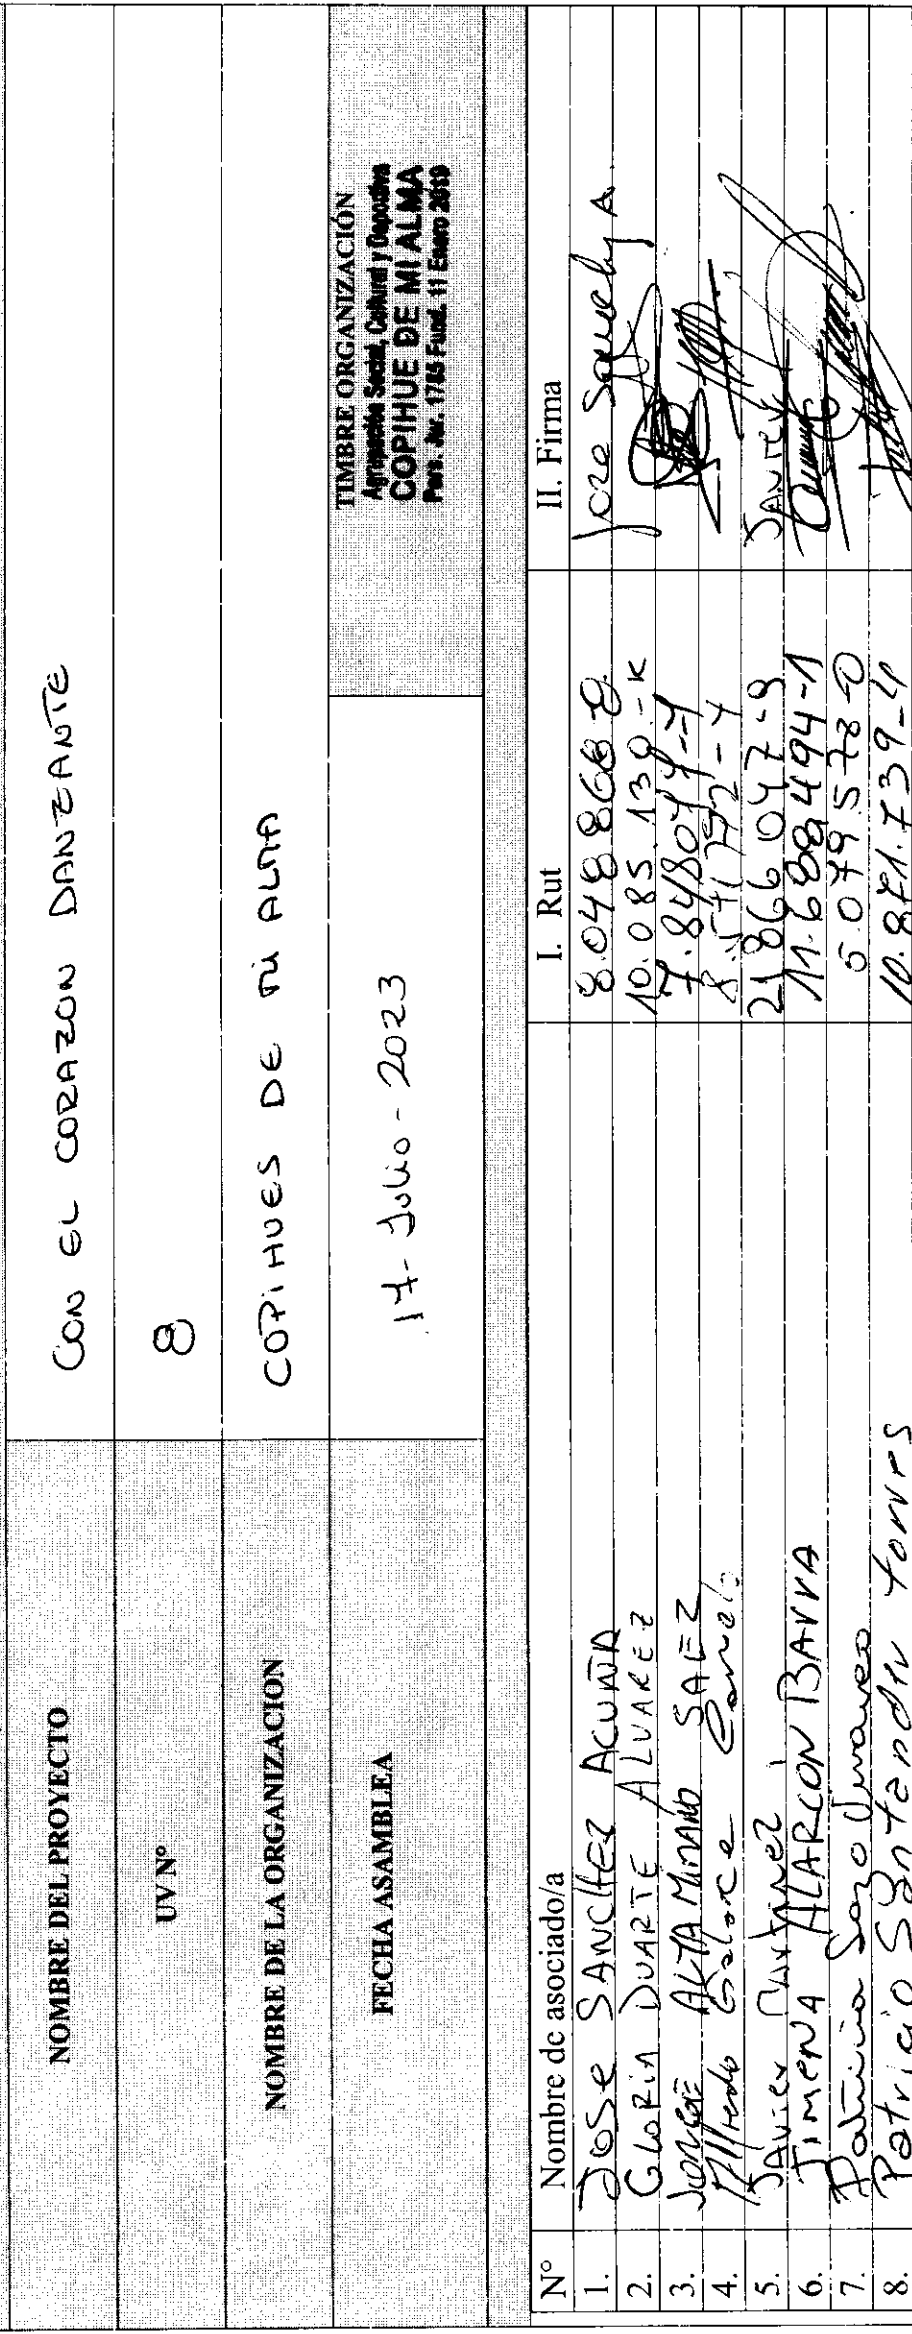 NOMBRE DEL PROYECTO CON EL CORAZON DANZANTE
UV N° 8
NOMBRE DE LA ORGANIZACION COPIHUES DE MI ALMA
FECHA ASAMBLEA 17-Julio-2023
TIMBRE ORGANIZACIÓN
Agrupación Social, Cultural y Deportiva
COPIHUE DE MI ALMA
Pers. Jur. 1785 Fund. 11 Enero 2019
N° Nombre de asociado/a I. Rut II. Firma
1. JOSE SANCHEZ ACUÑA 8.048866 Joze A
2. GLORIA DUARTE ALVAREZ 10.085.139-K
3. JORGE ALTAMIRANO SAEZ
4. Alfredo Galarce
5. JAVIER MARTINEZ 21866047-9 JAVIER
6. JIMENA ALARCON BARRA 11.688494-1
7. Patricia 5.079.573-0
8. Patricio Santander torres 10.871.739-4